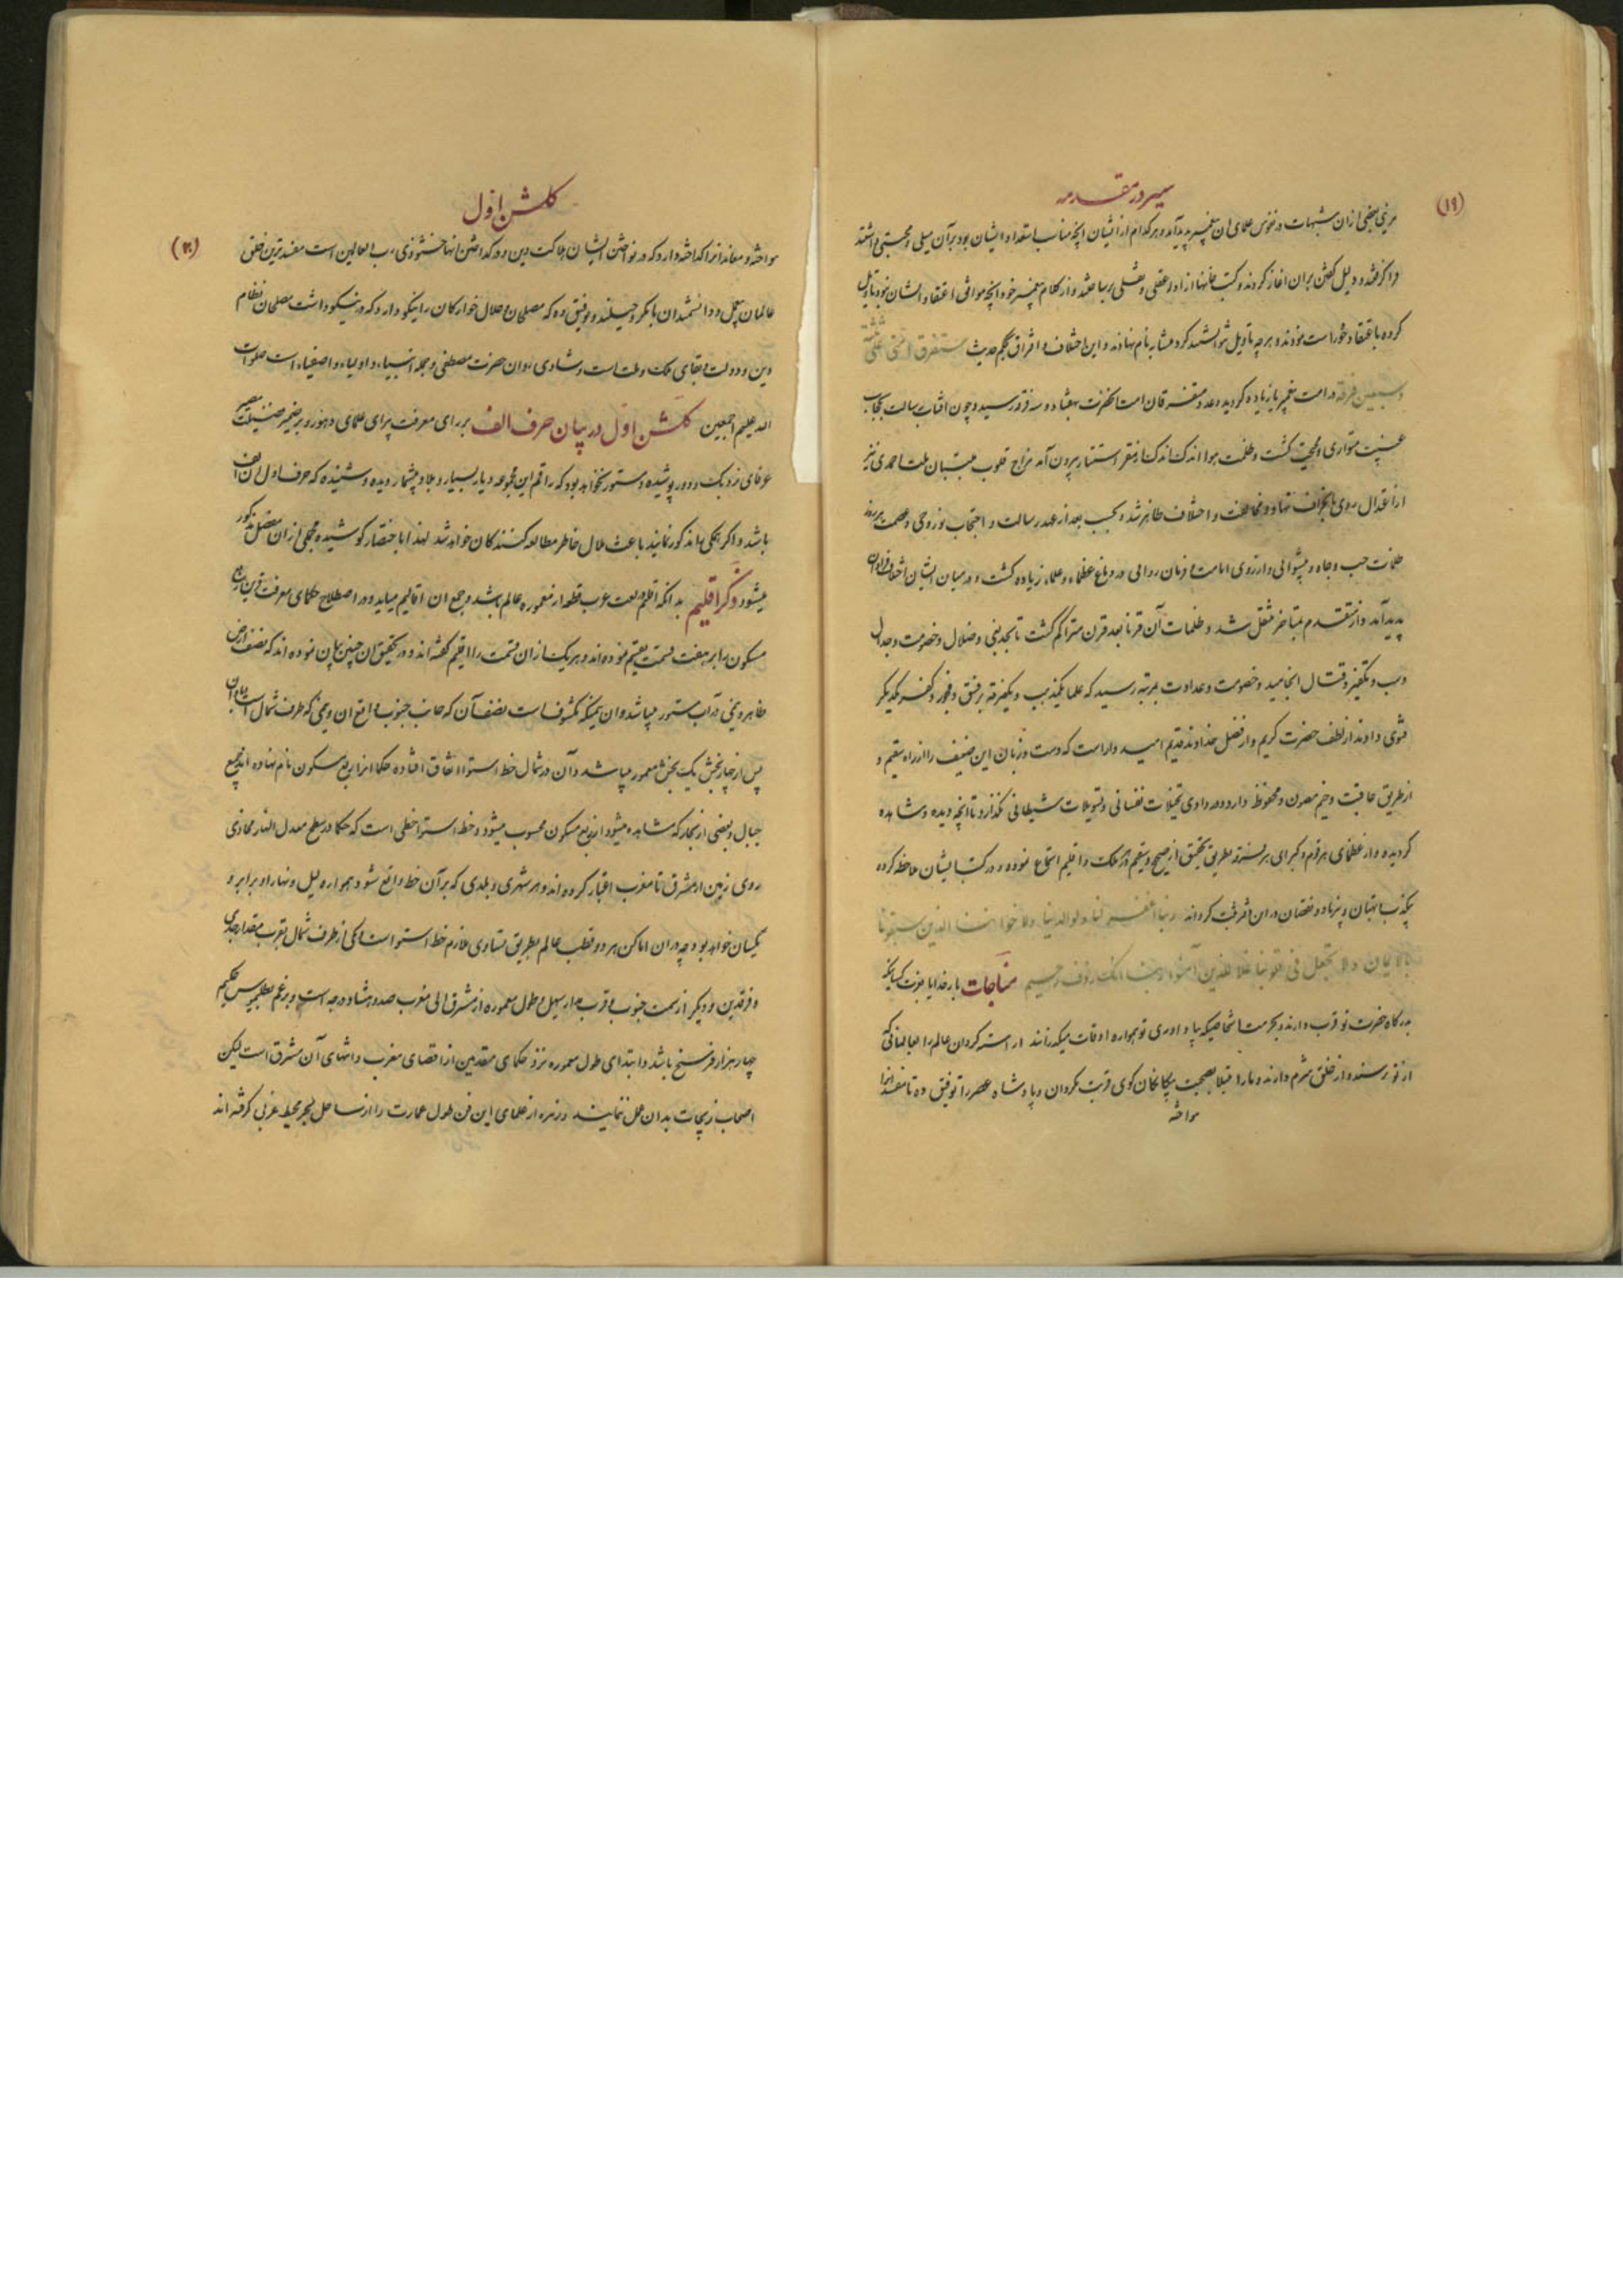 سیر در مقدمه
(۱۹)
برنی بعضی ازان شبهات در نفوس علمای ان پیغمبر پدید آمد و هر کدام از ایشان انچه مناسب استعداد ایشان بود بر آن میلی و محبتی داشتند
فرا گرفتند و دلیل گفتن بران اغاز کردند و کتب و از ادله عقلی و نقلی بساختند و از کلام پیغمبر خود انچه موافق اعتقاد ایشان نبود تاویل
کرده باعتقاد خود راست نمودند و هر چه تاویل نتوانستند کرد متشابه نام نهادند و این اختلاف و افتراق بحکم حدیث ستفرق امتی علی ثلثة
و سبعین فرقة در امت پیغمبر ما زیاده گردید و عدد متفرقان امت انحضرت بهفتاد و سه فرقه رسید و چون افتاب رسالت بحجاب
غیبت متواری و محتجب گشت و ظلمت هوا اندک اندک از مقر استتار بیرون آمد مزاج قلوب منتسبان ملت احمدی نیز
از اعتدال روی بانحراف نهاد و مخالفت و اختلاف ظاهر شد و بحسب بعد از عهد رسالت و احتجاب نور وحی و عصمت هر روز
ظلمات حب و جاه و پیشوائی و ارزوی امامت و فرمان روائی در دماغ عظماء و علماء زیاده گشت و در میان ایشان اختلاف فراوان
پدید آمد و از متقدم بمتاخر منتقل شد و ظلمات آن قرنا بعد قرن متراکم گشت تا بحد بغی و ضلال و خصومت و جدال
و سب و تکفیر و قتال انجامید و خصومت و عداوت بمرتبه رسید که علما بتکذیب و یکفرقه بر فسق و فجور و کفر یکدیگر
فتوی دادند از لطف حضرت کریم و از فضل خداوند قدیم امید وار است که دست و زبان این ضعیف را از راه سقیم و
از طریق عاقبت وخیم مصون و محفوظ دارد و در وادی تخیلات نفسانی و تسویلات شیطانی نگذارد تا انچه دیده و مشاهده
گردیده و از عظمای هر قوم و کبرای هر فرقه بطریق تحقیق از صحیح و سقیم هر ملک و اقلیم استماع نموده و در کتب ایشان ملاحظه کرده
بیکذب و بهتان و بی زیاد و نقصان در این اثر ثبت گرداند ربنا اغفر لنا و لوالدینا ولاخواننا الذین سبقونا
بالایمان ولا تجعل فی قلوبنا غلا للذین آمنوا ربنا انک رؤف رحیم مناجات بار خدایا بعزت کسانیکه
بدرگاه حضرت تو قرب دارند و بحرمت اشخاصیکه بیاد اوری تو همواره اوقات میگذرانند اراسته گردان عالم را بعالمانی که
از تو ترسنده و از خلق شرم دارند و ما را مبتلا بصحبت بیگانگان کوی قربت مگردان و پادشاه عصر را توفیق ده تا مفسدانرا
نواخته
گلشن اول
(۲۰)
نواخته و معاندانرا گداخته دارد که در نواختن ایشان هلاکت دین و در گداختن انها خشنودی رب العالمین است مفسدترین خلق
عالمان بیعمل و دانشمندان با مکر و حیلند و توفیق ده که مصلحان و حلال خوارگان را نیکو دارد که در نیکو داشت مصلحان نظام
دین و دولت و بقای ملک و ملت است و شادی روان حضرت مصطفی و جمله انبیاء و اولیاء و اصفیاء است صلوات
الله علیهم اجمعین گلشن اول در بیان حرف الف بر رای معرفت پیرای علمای دهور و بر ضمیر
عرفای نزدیک و دور پوشیده و مستور نخواهد بود که راقم این مجموعه دیار بسیار و بلاد بیشمار دیده و شنیده که حرف اول ان الف
باشد و اگر همگی انها مذکور نمایند باعث ملال خاطر مطالعه کنندگان خواهد شد لهذا باختصار کوشیده مجملی ازان مفصل مذکور
میشود ذکر اقلیم بدانکه اقلیم در لغت عرب قطعه از معموره عالم باشد و جمع ان اقالیم میاید و در اصطلاح حکمای معرفت قرین ربع
مسکون را بر هفت قسمت تقسیم نموده اند و هر یک ازان قسمت را اقلیم گفته اند و در تحقیق ان چنین بیان نموده اند که نصف ارض
ظاهر و نیمی در آب مستور میباشد و ان نیمیکه مکشوف است نصف آن که جانب جنوب واقع ان و نیمی که طرف شمال است آبادان
پس از چهار بخش یک بخش معمور میباشد و آن در شمال خط استوا اتفاق افتاده حکما انرا ربع مسکون نام نهاده اند جمیع
جبال و بعضی از بحار که مشاهده میشود از ربع مسکون محسوب میشود و خط استوا خطی است که حکما در سطح معدل النهار محاذی
روی زمین از مشرق تا مغرب اعتبار کرده اند و هر شهری و بلدی که بر آن خط واقع شود همواره لیل و نهار او برابر و
یکسان خواهد بود چه در ان اماکن هر دو قطب عالم بطریق تساوی ملازم خط استوا است یکی از طرف شمال بقرب مقدار جدی
و فرقدین و دیگر از سمت جنوب قرب مدار سهیل و طول معموره از مشرق الی مغرب صد و هشتاد درجه است و بر زعم بطلمیوس حکیم
چهار هزار فرسخ باشد و ابتدای طول معموره نزد حکمای متقدمین از اقصای مغرب و انتهای آن مشرق است لیکن
اصحاب زیجات بدان عمل ننمایند و زمره از علمای این فن طول عمارت را از ساحل بحر محیط غربی گرفته اند